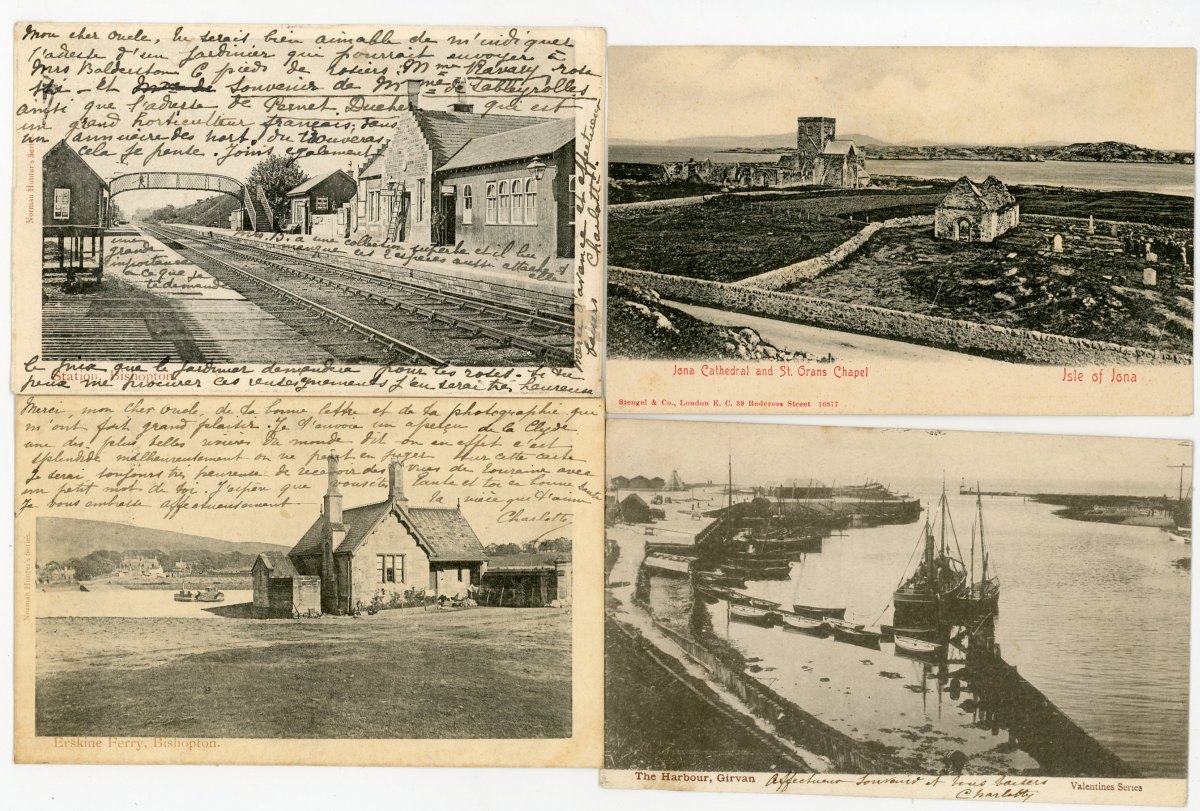 Mon cher oncle, Tu serais bien aimable de m'indiquer
l'adresse d'un jardinier qui pourrait envoyer à
Mrs Balderston 6 pieds de rosiers. Mme Ravary rose
thé - Et Souvenir de Mme de Sableyrolles
ainsi que l'adresse de Pernet Ducher qui est
un grand horticulteur français; dans
un annuaire des hort. tu trouveras
cela je pense. Joins également
N.B. a une collection superbe et il lui
manque ces espèces aussi
une
grande
importance
en ce que je
te demande
le prix que le jardinier demandera pour les roses. Si tu
peux me procurer ces renseignements j'en serai très heureuse
Merci d'avance et affectueux
baisers Charlotte
Norman Hunter's Series
Station, Bishopton.
Iona Cathedral and St. Orans Chapel
Isle of Iona
Stengel & Co., London E. C. 39 Redcross Street 16877
Merci, mon cher oncle, de ta bonne lettre et de ta photographie qui
m'ont fort grand plaisir. Je t'envoie un aperçu de la Clyde
une des plus belles rivières du monde dit-on en effet c'est
splendide malheureusement on ne peut en juger sur cette carte
Je serai toujours très heureuse de recevoir des vues de Touraine avec
un petit mot de toi. J'espère que vous êtes Tante et toi en bonne santé
Je vous embrasse affectueusement la nièce qui t'aime
Charlotte
Norman Hunter's Series.
Erskine Ferry, Bishopton.
The Harbour, Girvan
Affectueux souvenirs et bons baisers
Charlotte
Valentines Series